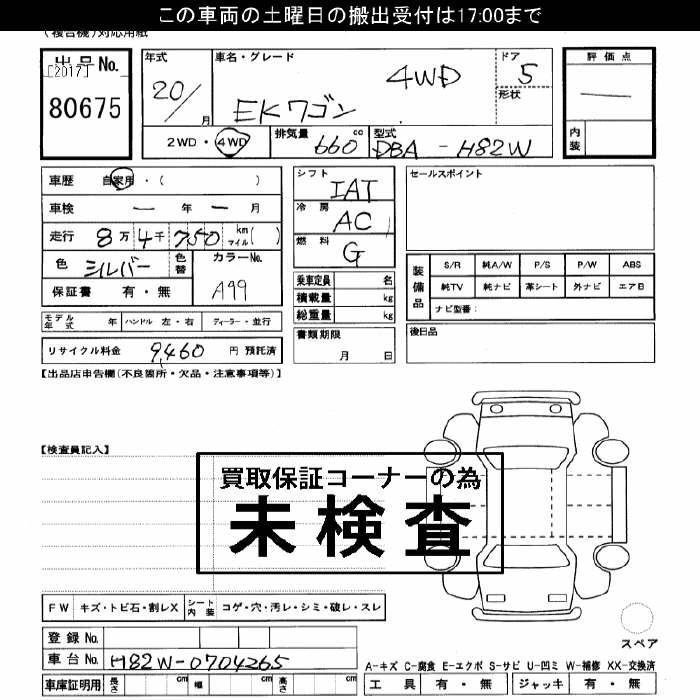 この車両の土曜日の搬出受付は17:00まで
(複合機)対応用紙
出品No.
[2017]
80675
年式
20/
月
車名・グレード
4WD
EKワゴン
ドア
5
形状
評価点
内装
2WD・4WD
排気量
660 cc
型式
DBA - H82W
車歴 自家用・( )
車検 ー 年 ー 月
走行 8万 4千 750 km マイル( )
色 シルバー
色替
カラーNo.
A99
保証書 有・無
モデル年式 年
ハンドル 左・右
ディーラー・並行
リサイクル料金 9,460 円 預託済
シフト
IAT
冷房
AC
燃料
G
乗車定員 名
積載量 kg
総重量 kg
書類期限
月 日
セールスポイント
装備品
S/R 純A/W P/S P/W ABS
純TV 純ナビ 革シート 外ナビ エアB
ナビ型番:
後日品
【出品店申告欄(不良箇所・欠品・注意事項等)】
【検査員記入】
買取保証コーナーの為
未検査
FW キズ・トビ石・割レX
シート内装 コゲ・穴・汚レ・シミ・破レ・スレ
登録No.
車台No. H82W-0704265
車庫証明用 長さ cm 幅 cm 高さ cm
スペア
A-キズ C-腐食 E-エクボ S-サビ U-凹ミ W-補修 XX-交換済
工具 有・無 ジャッキ 有・無